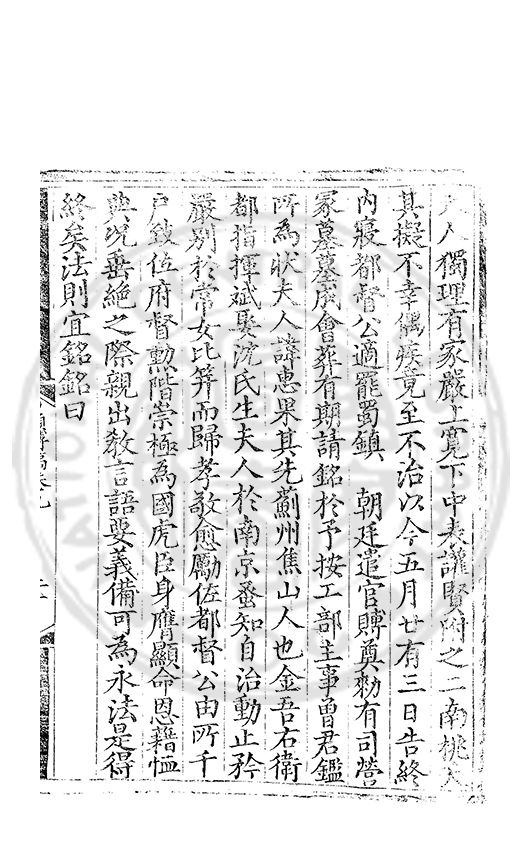 人獨理有家嚴上寛下中表讙賢附之二南桃夭
其擬不幸偶疾竟至不治以今五月廿有三日告終
内寢都督公適罷蜀鎮 朝廷遣官賻奠勑有司營
冢墓墓成會葬有期請銘於予按工部主事曾君鑑
所為狀夫人諱惠果其先薊州焦山人也金吾右衛
都指揮斌娶沈氏生夫人於南京蚤知自治動止矜
嚴别於常女比筓而歸孝敬愈勵佐都督公由所千
户致位府督勲階崇極為國虎臣身膺顯命恩藉恤
典况垂絶之際親出教言語要義備可為永法是得
終矣法則宜銘銘曰